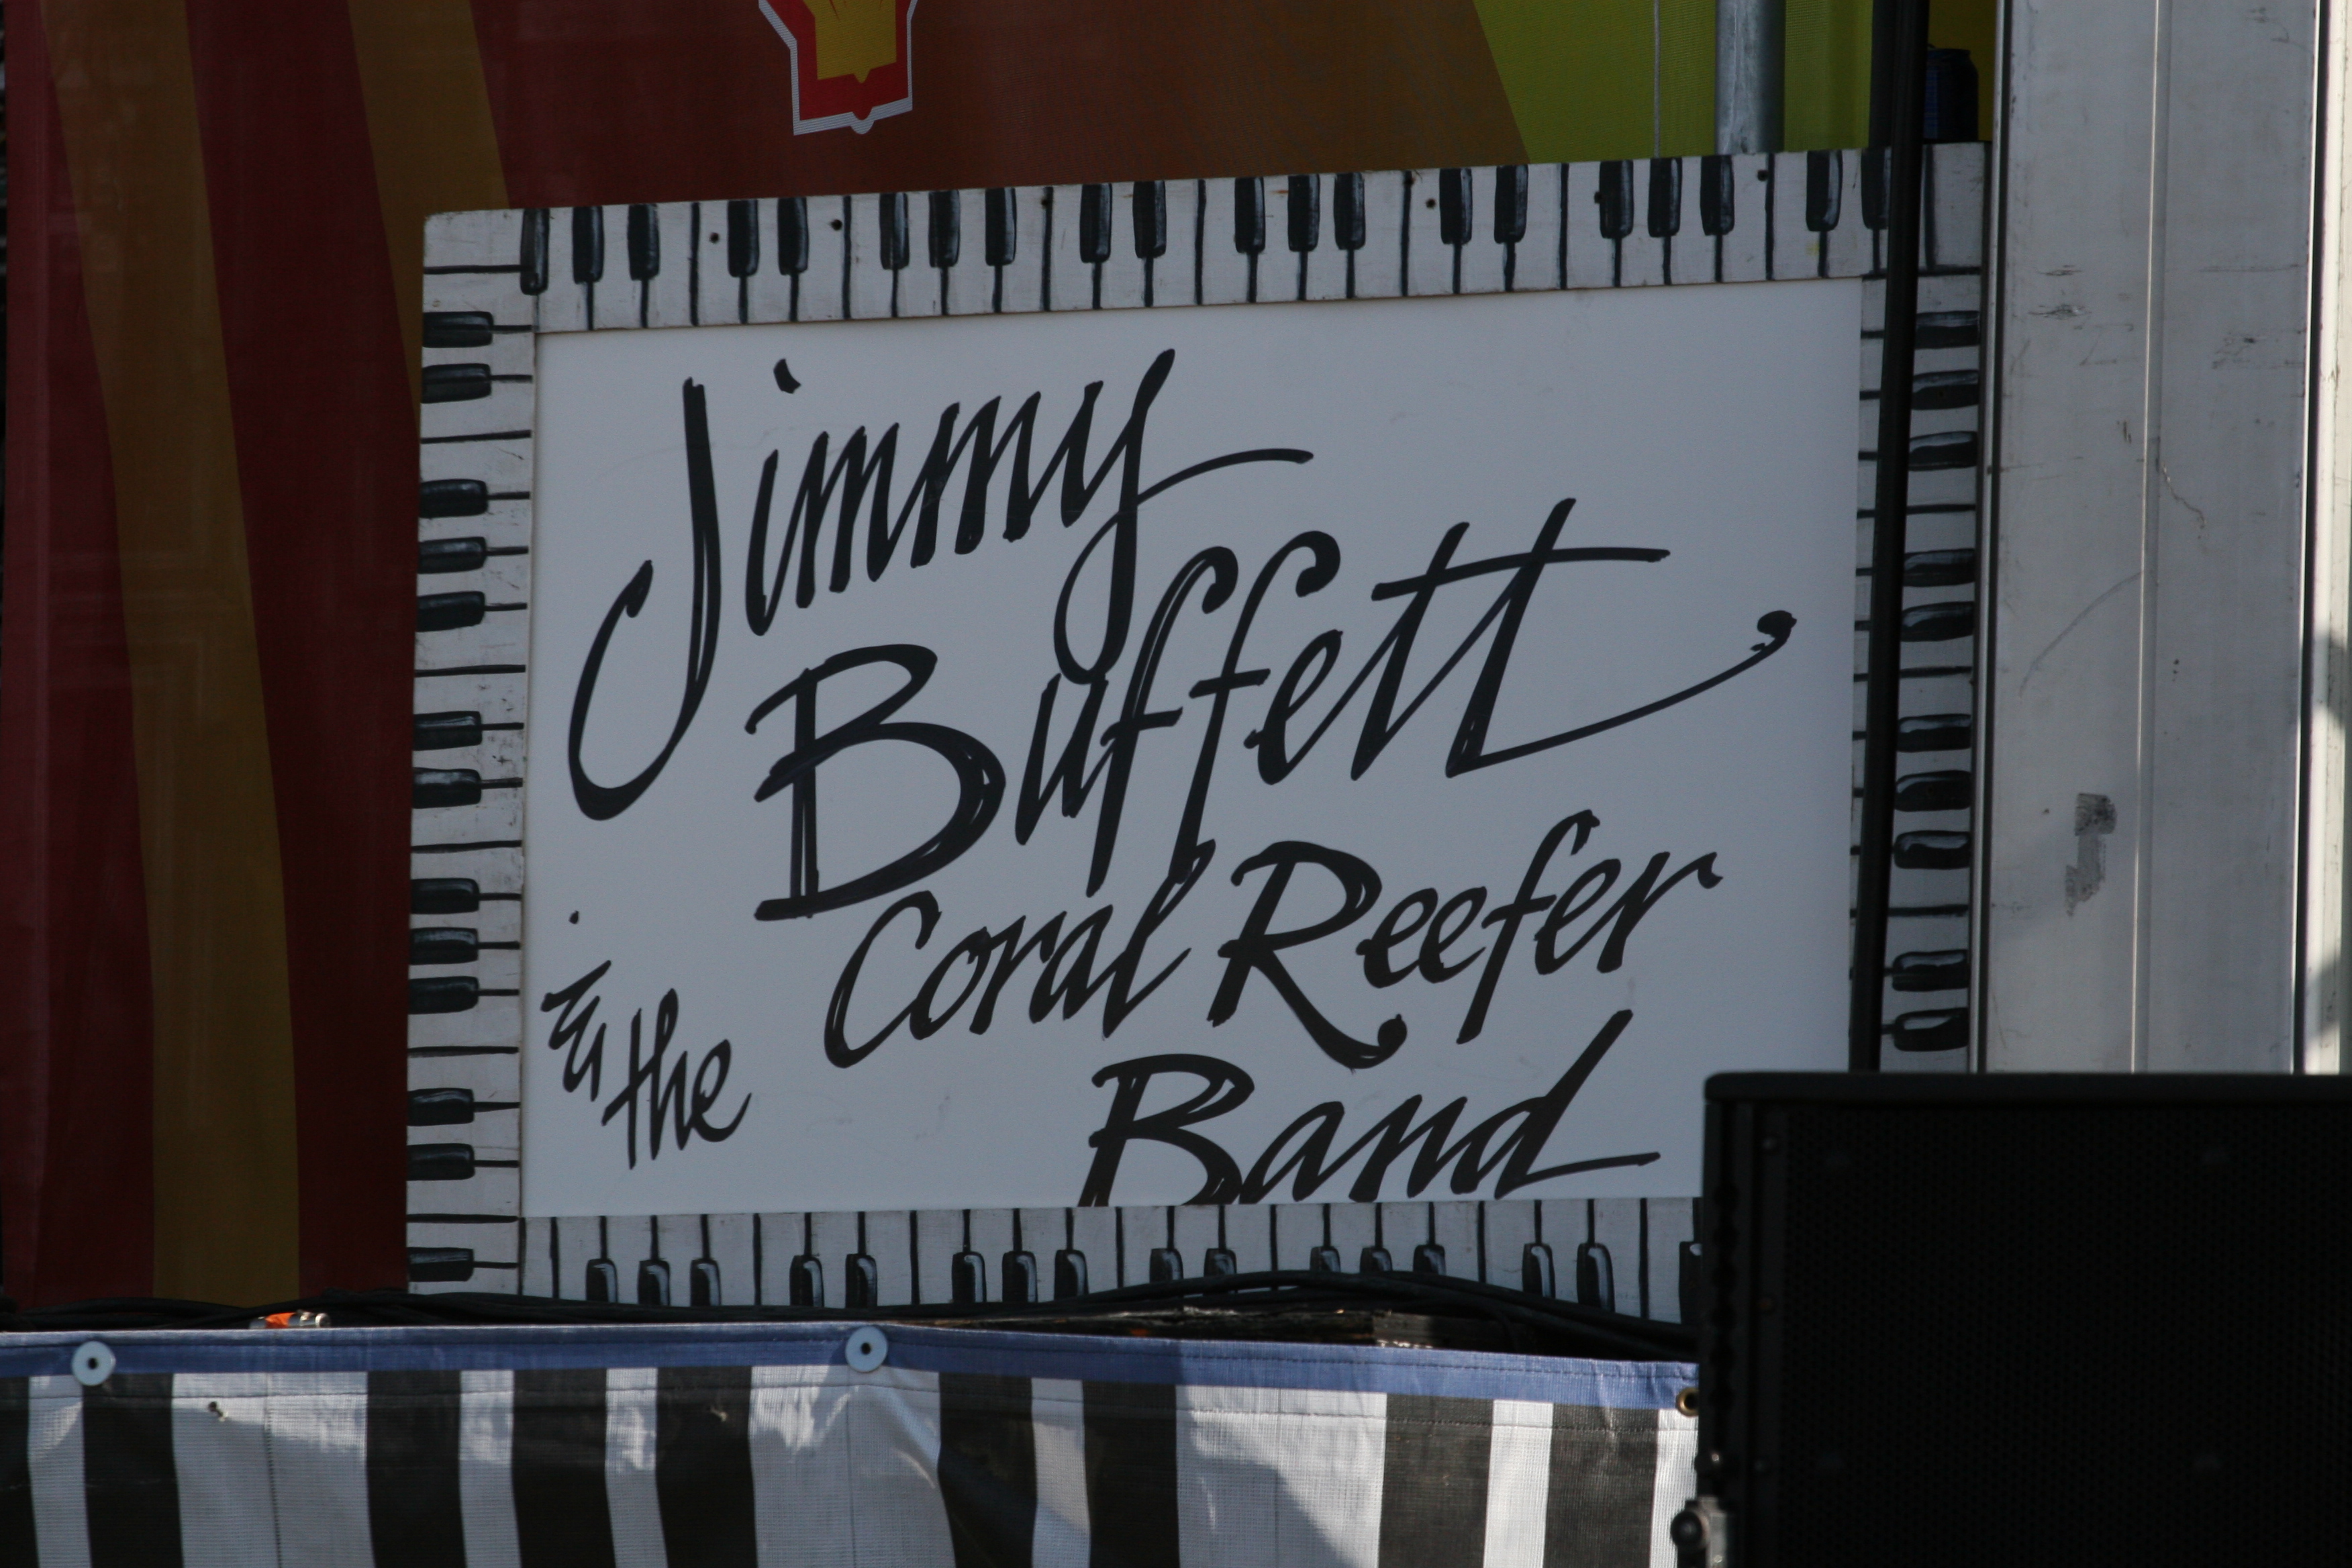 Jimmy
Buffett
& the Coral Reefer
Band